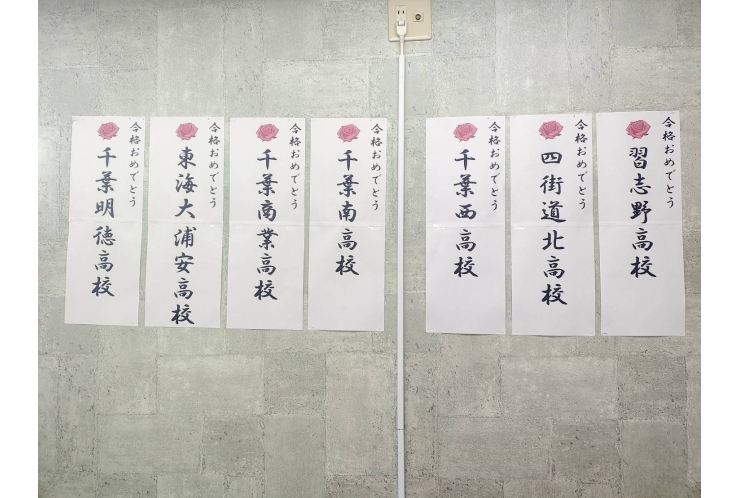 合格おめでとう
習志野高校
合格おめでとう
四街道北高校
合格おめでとう
千葉西高校
合格おめでとう
千葉南高校
合格おめでとう
千葉商業高校
合格おめでとう
東海大浦安高校
合格おめでとう
千葉明徳高校